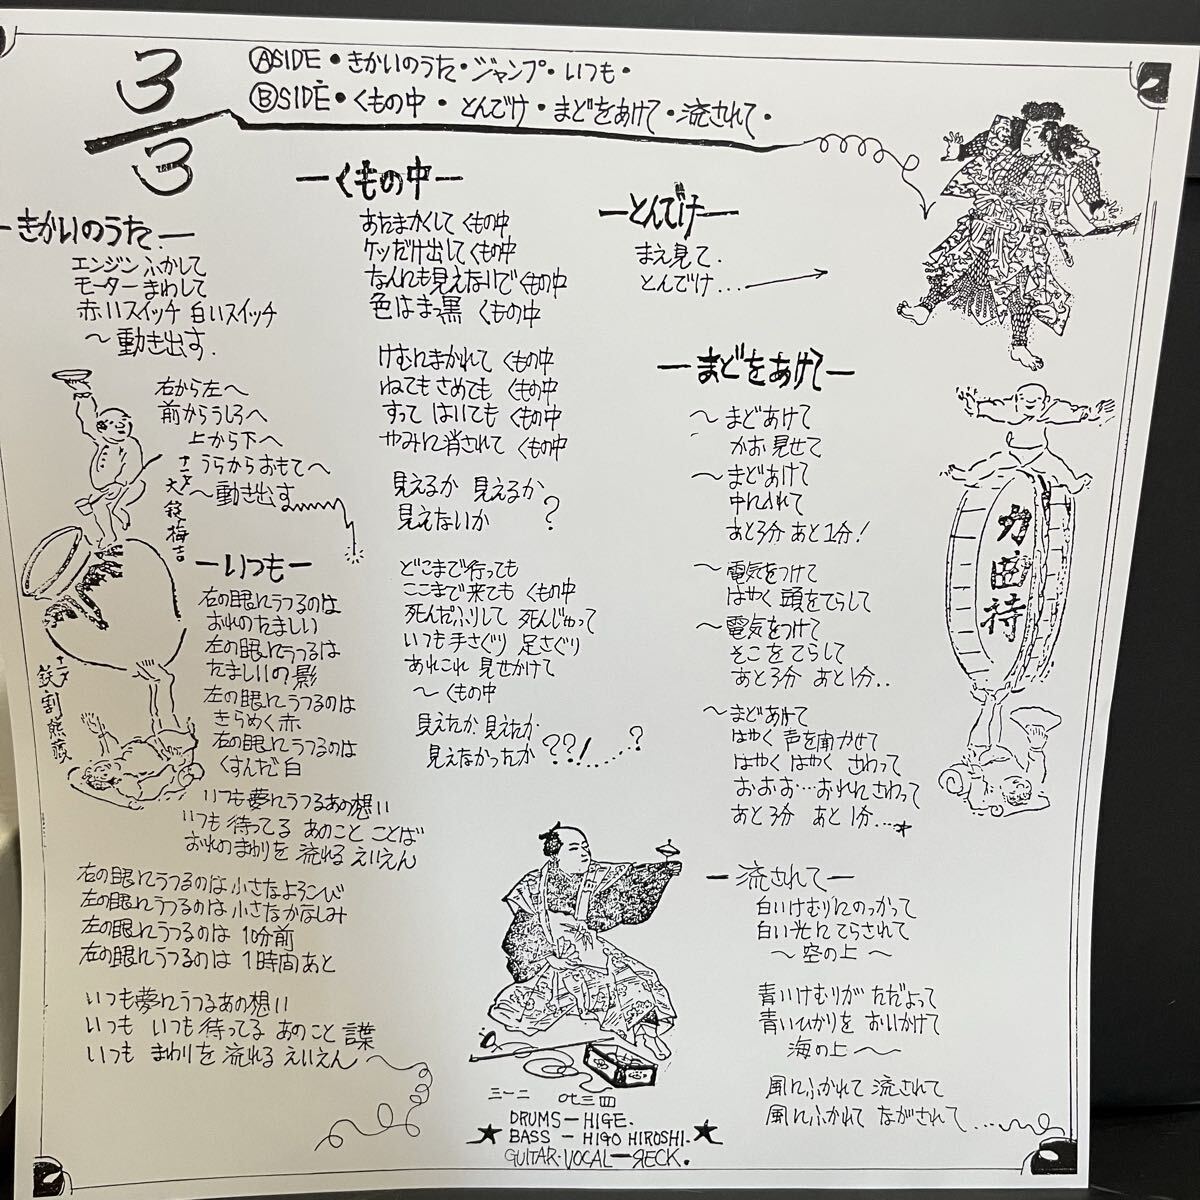 3/3
ⒶSIDE・きかいのうた・ジャンプ・いつも・
ⒷSIDE・くもの中・とんでけ・まどをあけて・流されて・
―きかいのうた―
エンジンふかして
モーターまわして
赤いスイッチ 白いスイッチ
～動き出す.
右から左へ
前からうしろへ
上から下へ
うらからおもてへ
～動き出す
―いつも―
右の眼にうつるのは
おれのたましい
左の眼にうつるは
たましいの影
左の眼にうつるのは
きらめく赤
右の眼にうつるのは
くすんだ白
いつも夢にうつるあの想い
いつも待ってる あのこと ことば
おれのまわりを 流れる えいえん
右の眼にうつるのは 小さなよろこび
左の眼にうつるのは 小さなかなしみ
左の眼にうつるのは 10分前
右の眼にうつるのは 1時間あと
いつも夢にうつるあの想い
いつも いつも待ってる あのこと
いつも まわりを 流れる えいえん～
―くもの中―
おたまかくして くもの中
ケツだけ出して くもの中
なんにも見えないで くもの中
色はまっ黒 くもの中
けむにまかれて くもの中
ねてもさめても くもの中
すって はいても くもの中
やみに消されて くもの中
見えるか 見えるか
見えないか ?
どこまで行っても
ここまで来ても くもの中
死んだふりして 死んじゃって
いつも手さぐり 足さぐり
あれこれ 見せかけて
～ くもの中
見えたか 見えたか
見えなかったか ??!.....?
―とんでけ―
まえ見て.
とんでけ...
―まどをあけて―
～ まどあけて
かお見せて
～ まどあけて
中に入れて
あと3分 あと1分!
～ 電気をつけて
はやく 頭をてらして
～ 電気をつけて
そこを てらして
あと3分 あと1分..
～ まどあけて
はやく 声を聞かせて
はやく はやく さわって
お・お・お・・・おれにさわって
あと3分 あと1分....
―流されて―
白いけむりにのっかって
白い光にてらされて
～ 空の上 ～
青いけむりが ただよって
青いひかりを おいかけて
海の上 ～～
風にふかれて 流されて
風にふかれて ながされて...
大錂梅吉
力曲持
三一二 四三
DRUMS―HIGE.
★ BASS ― HIGO HIROSHI. ★
GUITAR・VOCAL―RECK.